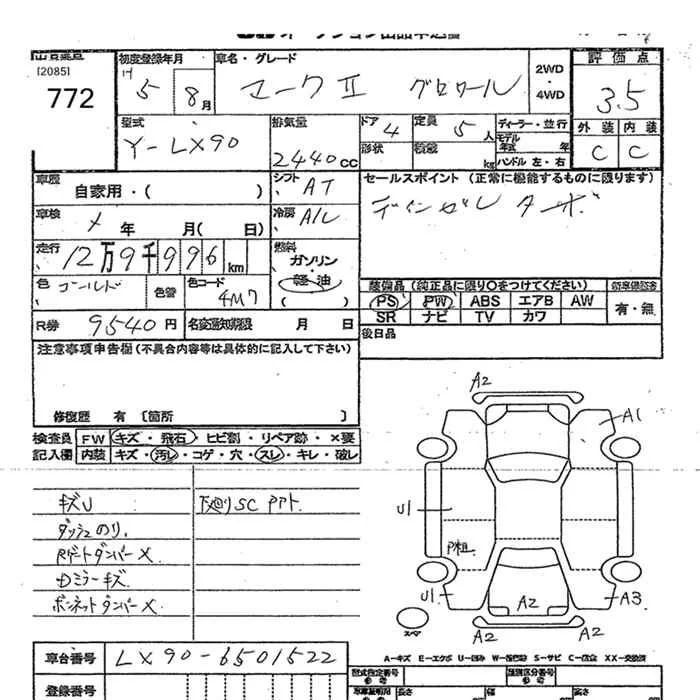 [2085]
772
初度登録年月
H
5
8月
車名・グレード
マークⅡ グロワール
2WD
・
4WD
評価点
3.5
型式
Y-LX90
排気量
2440cc
ドア
4
定員
5人
形状
積載
kg
ディーラー・並行
モデル
年式 年
ハンドル 左・右
外装 内装
C C
車歴
自家用・( )
シフト
AT
セールスポイント (正常に機能するものに限ります)
ディーゼル ターボ
車検
メ 年 月( 日)
冷房
A/C
走行
12万9千996km
燃料
ガソリン
・
軽油
( )
色
ゴールド
色替
色コード
4M7
装備品(純正品に限り○をつけてください)
PS PW ABS エアB AW
SR ナビ TV カワ
有・無
R券 9540円
名変通知期限 月 日
後日品
注意事項申告欄(不具合内容等は具体的に記入して下さい)
修復歴 有 〔箇所 〕
検査員
記入欄
FW キズ・飛石・ヒビ割・リペア跡・×要
内装 キズ・汚レ・コゲ・穴・スレ・キレ・破レ
キズU
下廻りSC PPT.
ダッシュのり.
Rゲートダンパー×
Dミラーキズ
ボンネットダンパー×
A2
A1
U1
P粗
U1
A2
A3
A2 A2
スペア
A-キズ E-エクボ U-凹み W-補修跡 S-サビ C-腐食 XX-交換済
車台番号
LX90-6501522
登録番号
型式指定番号
参考
類別区分番号
参考
長さ
幅
高さ